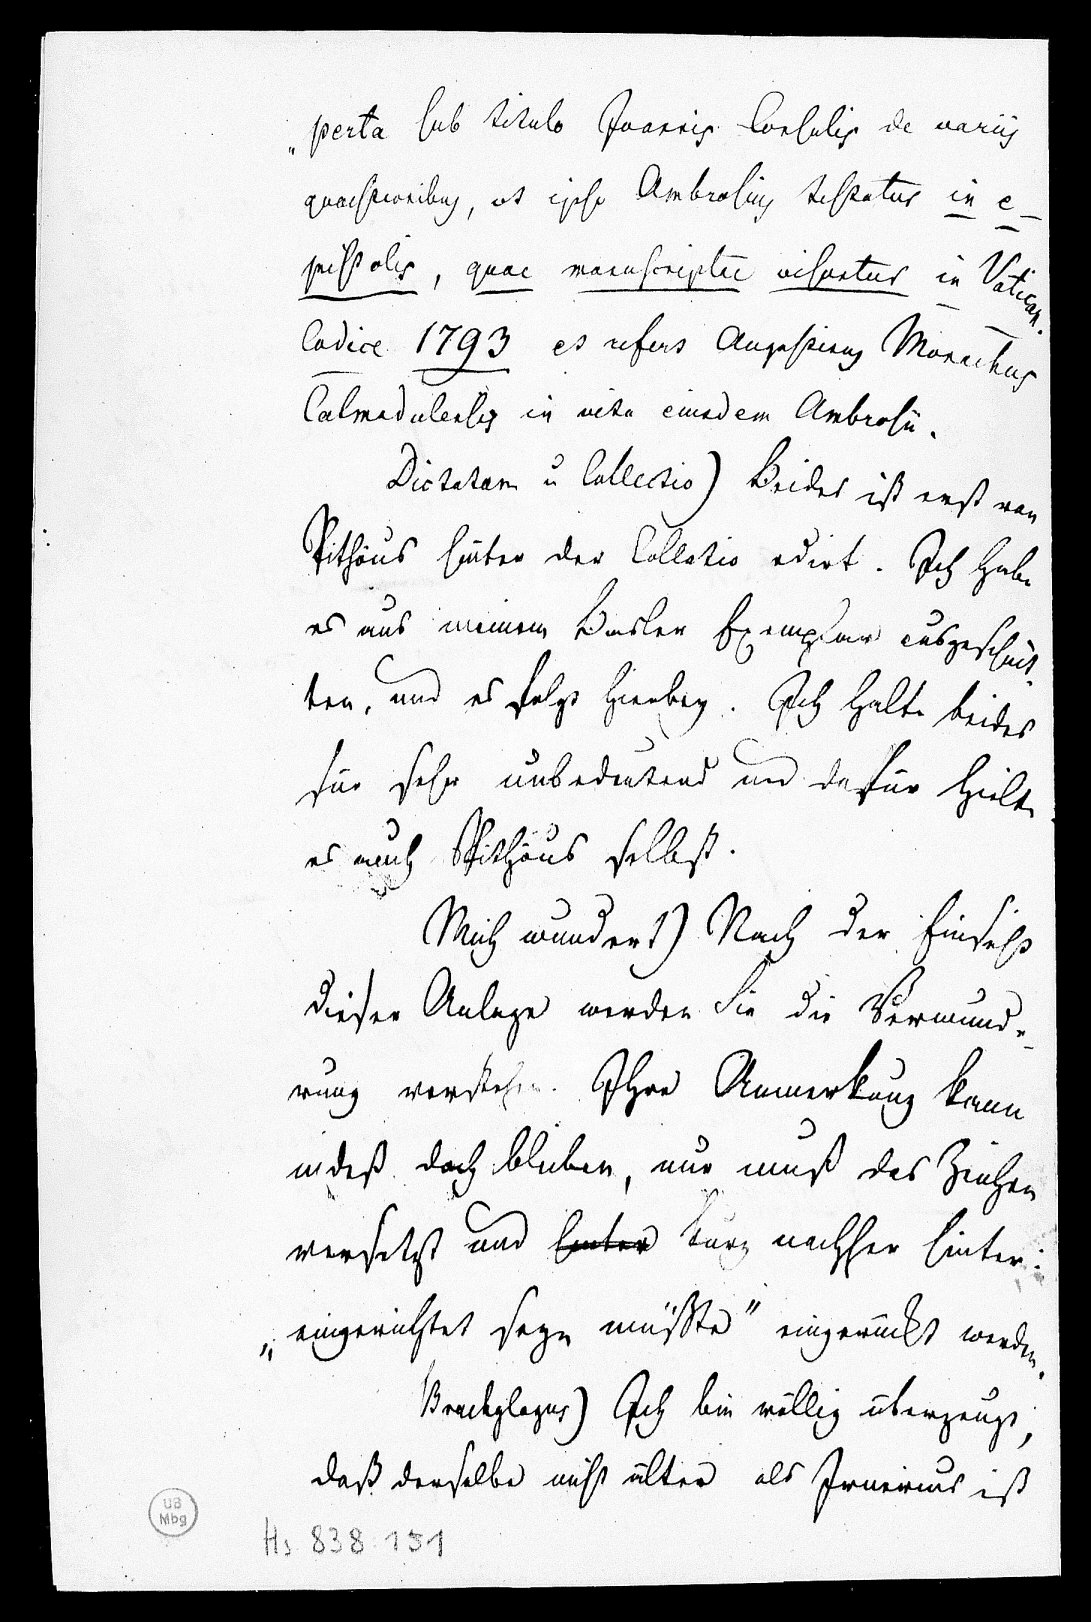 „perta sub titulo Joannis Consulis de variis
quaestionibus, ut ipse Ambrosius testatus in e-
pistolis, quae manuscriptae visuntur in Vatican.
Codice 1793 et refert Augustinus Monachus
Calmadulensis in vita eiusdem Ambrosii.
Dictatum u Collectio) Beides ist erst von
Pithöus hinter der Collatio edirt. Ich habe
es aus meinem Basler Exemplar ausgeschnit-
ten, und es folgt hierbey. Ich halte beides
für sehr unbedeutend und dafür hielt
es auch Pithöus selbst.
Mich wundert) Nach der Einsicht
dieser Anlage werden Sie die Verwunde-
rung verstehen. Ihre Anmerkung kann
indeß doch bleiben, nur muß das Zeichen
versetzt und hinter kurz nachher hinter:
„eingerichtet seyn müßte" eingerückt werden.
Brachylogus) Ich bin völlig überzeugt,
daß derselbe nicht älter als Irnerius ist
UB
Mbg
Hs 838 151